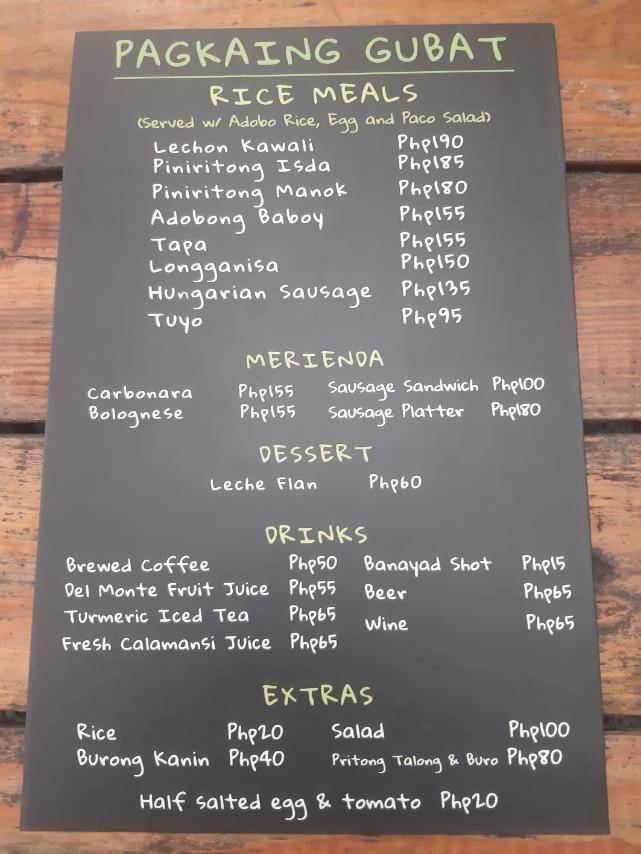 PAGKAING GUBAT
RICE MEALS
(Served w/ Adobo Rice, Egg and Paco Salad)
Lechon Kawali Php190
Piniritong Isda Php185
Piniritong Manok Php180
Adobong Baboy Php155
Tapa Php155
Longganisa Php150
Hungarian Sausage Php135
Tuyo Php95
MERIENDA
Carbonara Php155 Sausage Sandwich Php100
Bolognese Php155 Sausage Platter Php180
DESSERT
Leche Flan Php60
DRINKS
Brewed Coffee Php50 Banayad Shot Php15
Del Monte Fruit Juice Php55 Beer Php65
Turmeric Iced Tea Php65 Wine Php65
Fresh Calamansi Juice Php65
EXTRAS
Rice Php20 Salad Php100
Burong Kanin Php40 Pritong Talong & Buro Php80
Half salted egg & tomato Php20